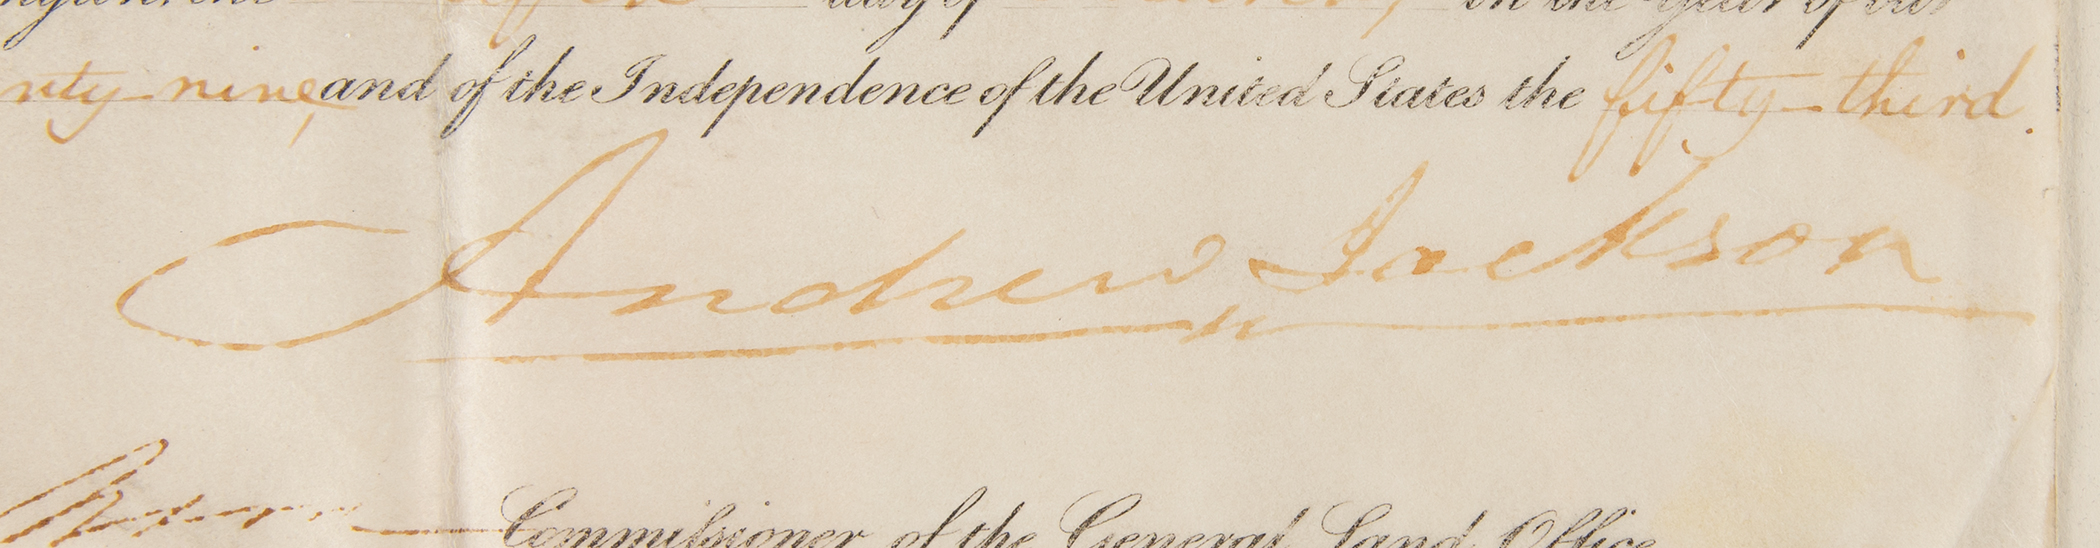 day of in the year of our
nty nine, and of the Independence of the United States the fifty-third.
Andrew Jackson
Commissioner of the General Land Office